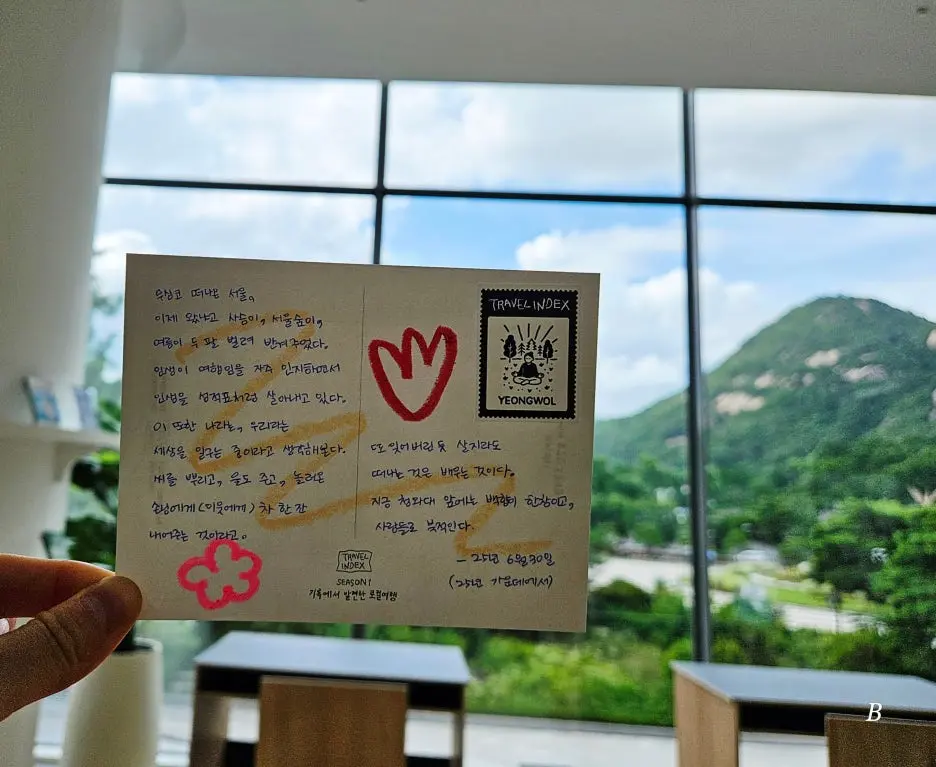 무심코 떠나온 서울.
이제 왔냐고 사슴이, 서울숲이,
여름이 두 팔 벌려 반겨주었다.
인생이 여행임을 자주 인지하면서
인생을 성적표처럼 살아내고 있다.
이 또한 나라는, 우리라는
세상을 일구는 중이라고 생각해본다.
씨를 뿌리고, 물도 주고, 놀러온
손님에게(이웃에게) 차 한 잔
내어주는 것이라고.
TRAVEL INDEX
YEONGWOL
또 잊어버린 듯 살지라도
떠나는 것은 배우는 것이다.
지금 청와대 앞에는 백합이 한창이고,
사람들로 북적인다.
- 25년 6월 30일
(25년 가운데에서)
TRAVEL
INDEX
SEASON 1
기록에서 발견한 로컬여행
B